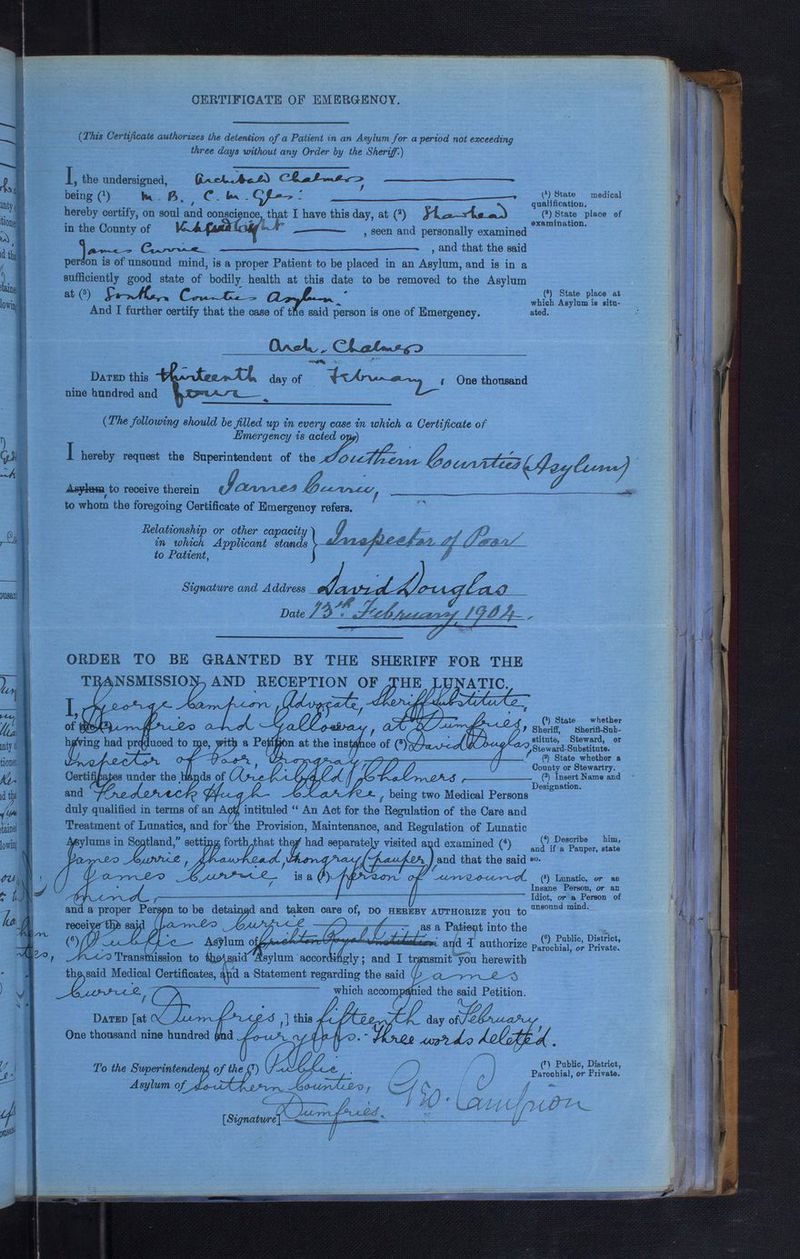 CERTIFICATE OF EMERGENCY.
(This Certificate authorizes the detention of a Patient in an Asylum for a period not exceeding
three days without any Order by the Sheriff.)
I, the undersigned, Archibald Chalmers
being (¹) M. B., C. M. Glas:
hereby certify, on soul and conscience, that I have this day, at (²) Shawhead
in the County of Kirkcudbright, seen and personally examined
James Currie, and that the said
person is of unsound mind, is a proper Patient to be placed in an Asylum, and is in a
sufficiently good state of bodily health at this date to be removed to the Asylum
at (³) Southern Counties Asylum.
And I further certify that the case of the said person is one of Emergency.
(¹) State medical
qualification.
(²) State place of
examination.
(³) State place at
which Asylum is situ-
ated.
Arch. Chalmers
DATED this thirteenth day of February, One thousand
nine hundred and four.
(The following should be filled up in every case in which a Certificate of
Emergency is acted on.)
I hereby request the Superintendent of the Southern Counties (Asylum)
Asylum, to receive therein James Currie,
to whom the foregoing Certificate of Emergency refers.
Relationship or other capacity
in which Applicant stands
to Patient,
Inspector of Poor
Signature and Address David Douglas
Date 13th February, 1904.
ORDER TO BE GRANTED BY THE SHERIFF FOR THE
TRANSMISSION AND RECEPTION OF THE LUNATIC.
I, George Campion, Advocate, Sheriff Substitute,
of Dumfries and Galloway, at Dumfries,
having had produced to me, with a Petition at the instance of (³) David Douglas
Inspector of Poor, Irongray
Certificates under the hands of Archibald Chalmers,
and Frederick Hugh Clarke, being two Medical Persons
duly qualified in terms of an Act intituled “ An Act for the Regulation of the Care and
Treatment of Lunatics, and for the Provision, Maintenance, and Regulation of Lunatic
Asylums in Scotland,” setting forth that they had separately visited and examined (⁴)
James Currie, Shawhead, Irongray (pauper) and that the said
James Currie is a (⁵) person of unsound
mind,
and a proper Person to be detained and taken care of, DO HEREBY AUTHORIZE you to
receive the said James Currie as a Patient into the
(⁶) Public Asylum of Crichton Royal Institution and I authorize
his Transmission to the said Asylum accordingly; and I transmit you herewith
the said Medical Certificates, and a Statement regarding the said James
Currie, which accompanied the said Petition.
DATED [at Dumfries,] this fifteenth day of February
One thousand nine hundred and four years. - Three words deleted.
To the Superintendent of the (⁷) Public
Asylum of Southern Counties,
Dumfries.
[Signature] Geo. Campion
(¹) State whether
Sheriff, Sheriff-Sub-
stitute, Steward, or
Steward-Substitute.
(²) State whether a
County or Stewartry.
(³) Insert Name and
Designation.
(⁴) Describe him,
and if a Pauper, state
so.
(⁵) Lunatic, or an
Insane Person, or an
Idiot, or a Person of
unsound mind.
(⁶) Public, District,
Parochial, or Private.
(⁷) Public, District,
Parochial, or Private.